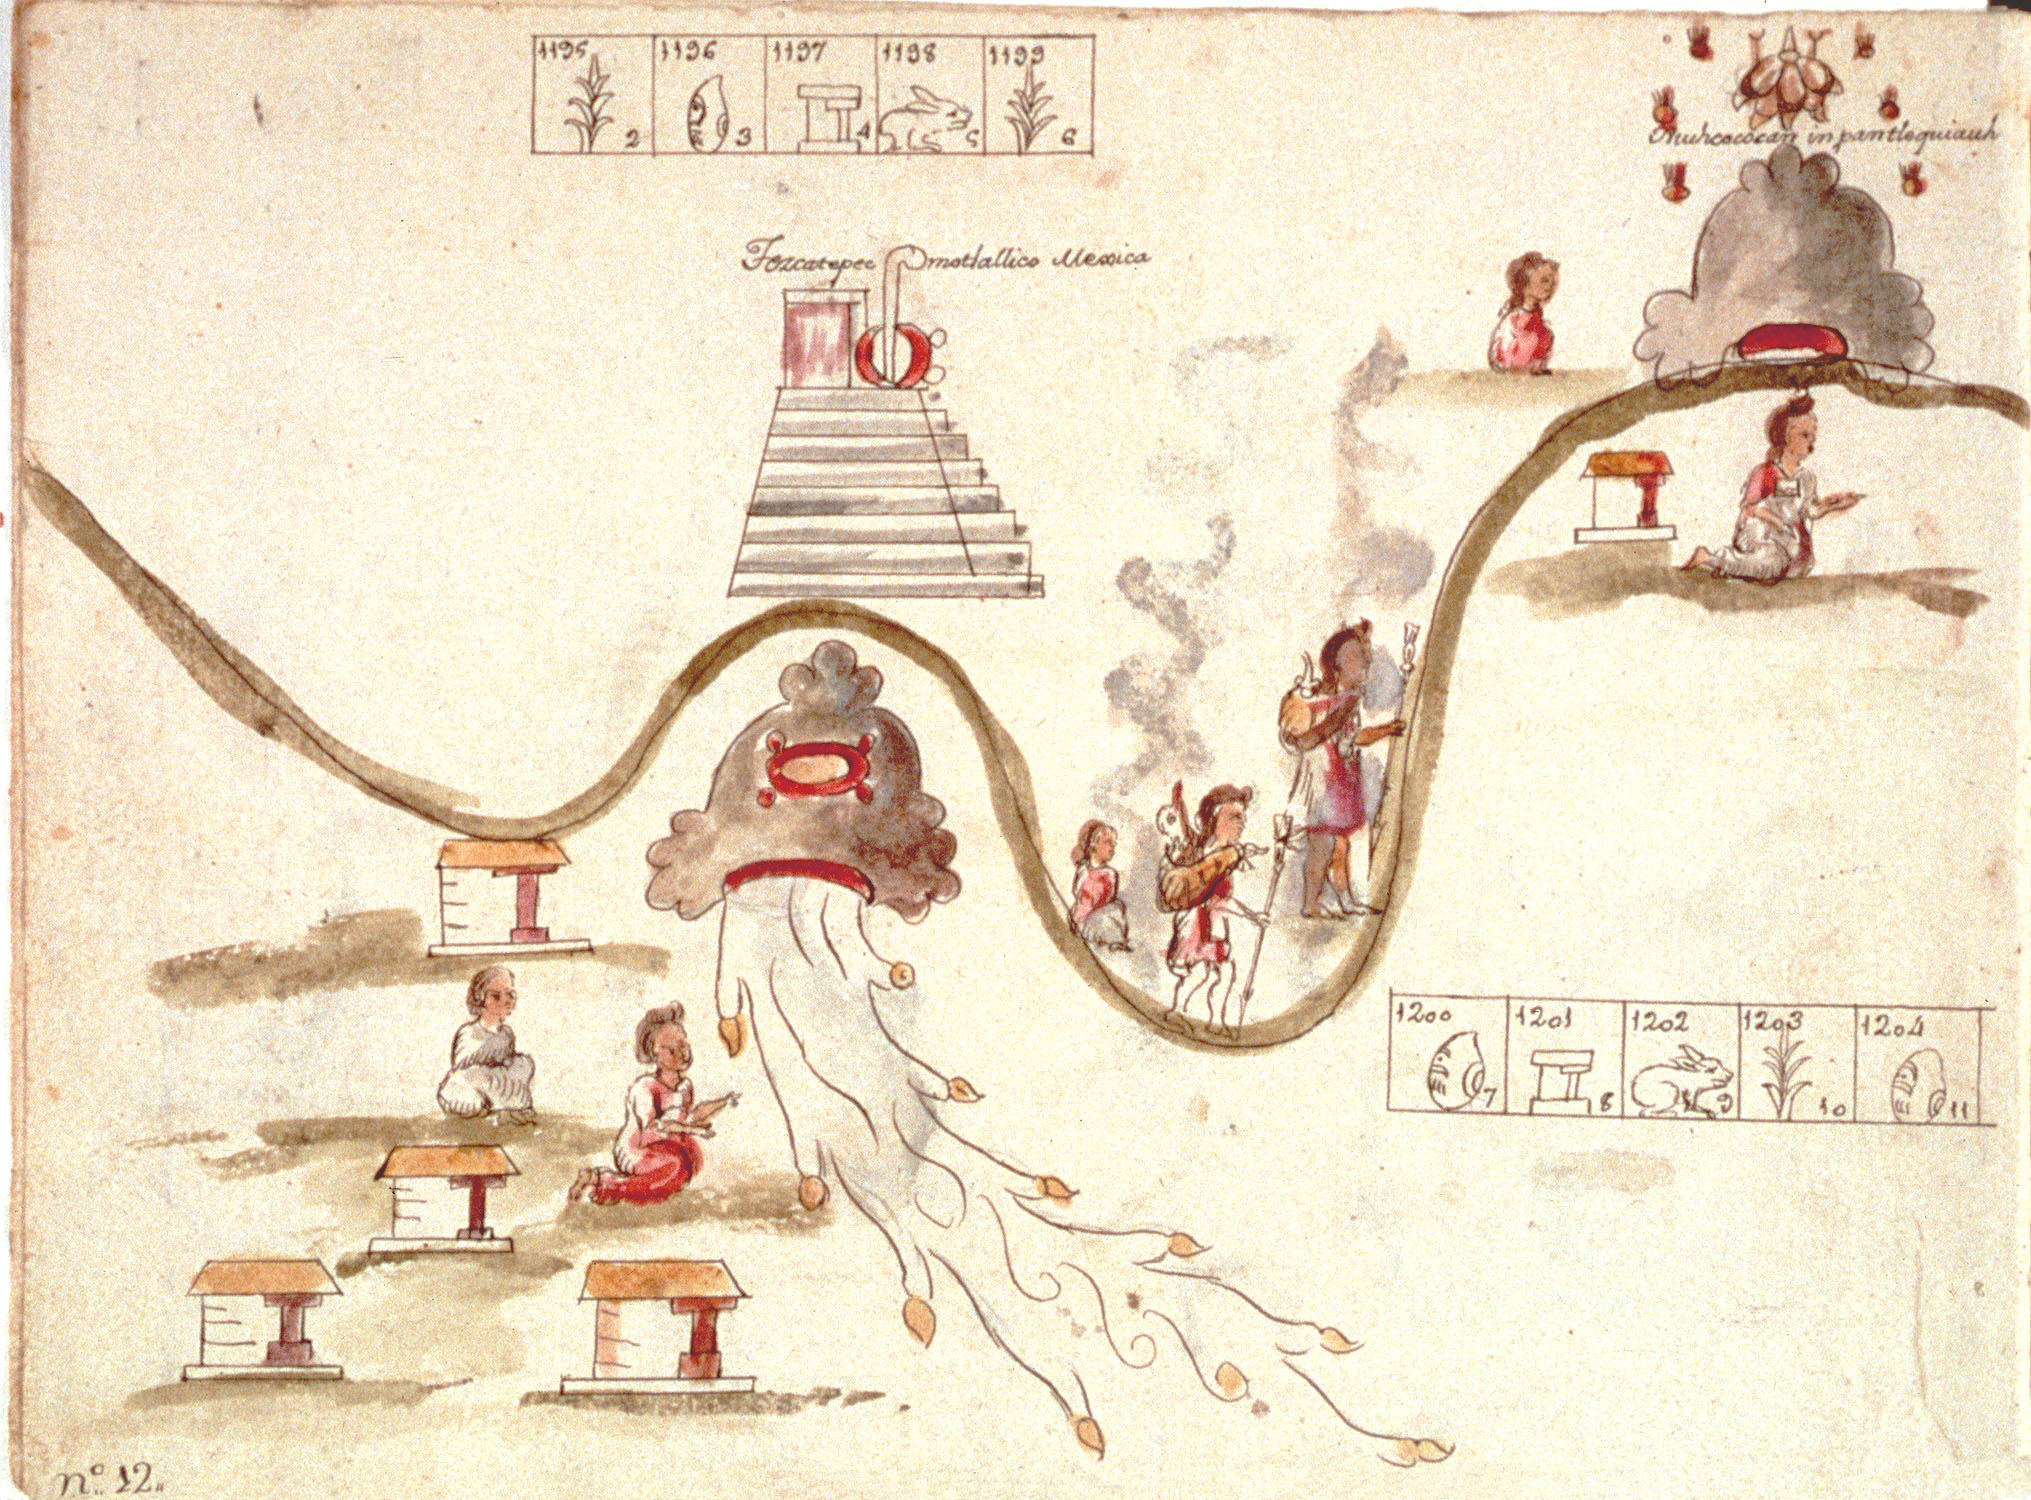 1195 1196 1197 1198 1199
2 3 4 5 6
Tezcatepec Omotlallico Mexica
in pantlaquiauh
1200 1201 1202 1203 1204
7 8 9 10 11
nº. 12.,